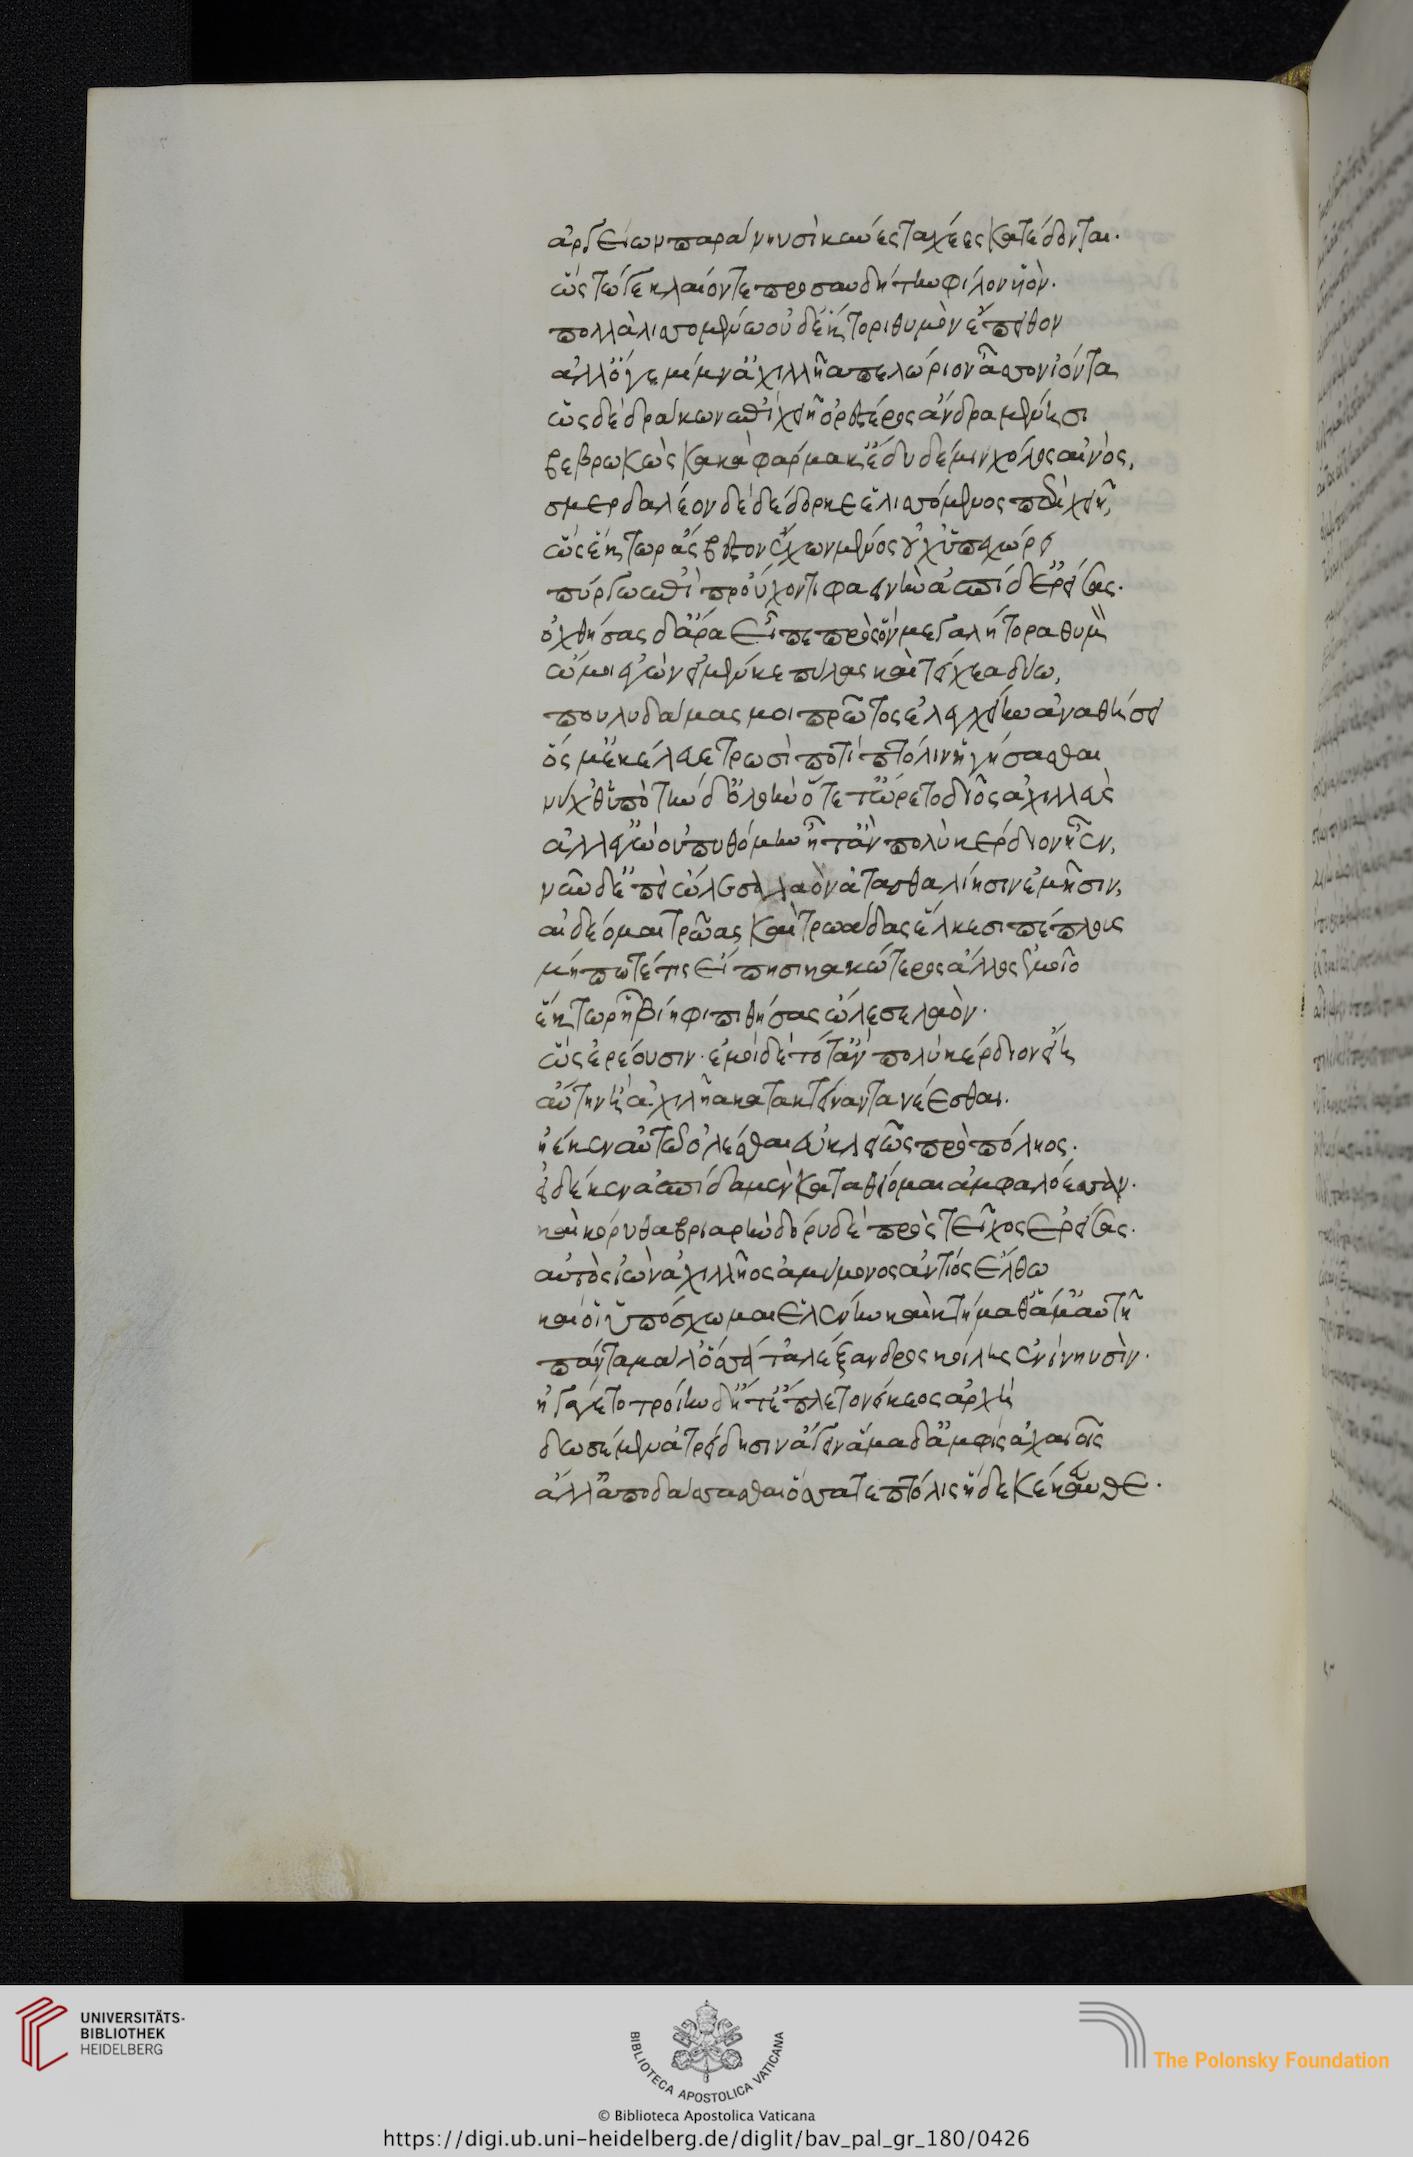 ἀργείων παρὰ νηυσὶ κύνες ταχέες κατέδονται.
ὣς τώγε κλαίοντε προσαυδήτην φίλον υἱὸν.
πολλὰ λισσομένω οὐδ' ἕκτορι θυμὸν ἔπειθον
ἀλλ' ὅγε μίμν' ἀχιλλῆα πελώριον ἆσσον ἰόντα
ὡς δὲ δράκων ἐπὶ χειῇ ὀρέστερος ἄνδρα μένῃσι
βεβρωκὼς κακὰ φάρμακ' ἔδυ δέ μιν χόλος αἰνὸς,
σμερδαλέον δὲ δέδορκεν ἑλισσόμενος περὶ χειῇ,
ὣς ἕκτωρ ἄσβεστον ἔχων μένος οὐχ ὑπεχώρει
πύργῳ ἐπὶ προὔχοντι φαεινὴν ἀσπίδ' ἐρείσας.
ὀχθήσας δ' ἄρα εἶπε πρὸς ὃν μεγαλήτορα θυμὸν
ὤμοι ἐγὼν εἰ μέν κε πύλας καὶ τείχεα δύω,
πουλυδάμας μοι πρῶτος ἐλεγχείην ἀναθήσει
ὅς μ' ἐκέλευε τρωσὶ ποτὶ πτόλιν ἡγήσασθαι
νύχθ' ὑπὸ τήνδ' ὀλοὴν ὅτε τ' ὤρετο δῖος ἀχιλλεὺς
ἀλλ' ἐγὼ οὐ πυθόμην ἦ τ' ἂν πολὺ κέρδιον ἦεν,
νῦν δ' ἐπεὶ ὤλεσα λαὸν ἀτασθαλίῃσιν ἐμῇσιν,
αἰδέομαι τρῶας καὶ τρωάδας ἑλκεσιπέπλους
μήποτέ τις εἴπῃσι κακώτερος ἄλλος ἐμοῖο
ἕκτωρ ἧφι βίηφι πιθήσας ὤλεσε λαὸν.
ὣς ἐρέουσιν. ἐμοὶ δὲ τότ' ἂν πολὺ κέρδιον εἴη
ἄντην ἢ ἀχιλῆα κατακτείναντα νέεσθαι.
ἠέ κεν αὐτῷ ὀλέσθαι ἐϋκλειῶς πρὸ πόληος.
εἰ δέ κεν ἀσπίδα μὲν καταθείομαι ὀμφαλόεσσαν.
καὶ κόρυθα βριαρὴν δόρυ δὲ πρὸς τεῖχος ἐρείσας.
αὐτὸς ἰὼν ἀχιλλῆος ἀμύμονος ἀντίος ἔλθω
καί οἱ ὑπόσχωμαι ἑλένην καὶ κτήμαθ' ἅμ' αὐτῇ
πάντα μάλ' ὅσσά τ' ἀλέξανδρος κοίλῃς ἐνὶ νηυσὶν.
ἠγάγετο τροίην δ' ἥτ' ἔπλετο νείκεος ἀρχὴ
δωσέμεν ἀτρείδῃσιν ἄγειν ἅμα δ' ἀμφὶς ἀχαιοῖς
ἄλλ' ἀποδάσσασθαι ὅσσα τε πτόλις ἥδε κέκευθε.
UNIVERSITÄTS-
BIBLIOTHEK
HEIDELBERG
BIBLIOTECA APOSTOLICA VATICANA
The Polonsky Foundation
© Biblioteca Apostolica Vaticana
https://digi.ub.uni-heidelberg.de/diglit/bav_pal_gr_180/0426